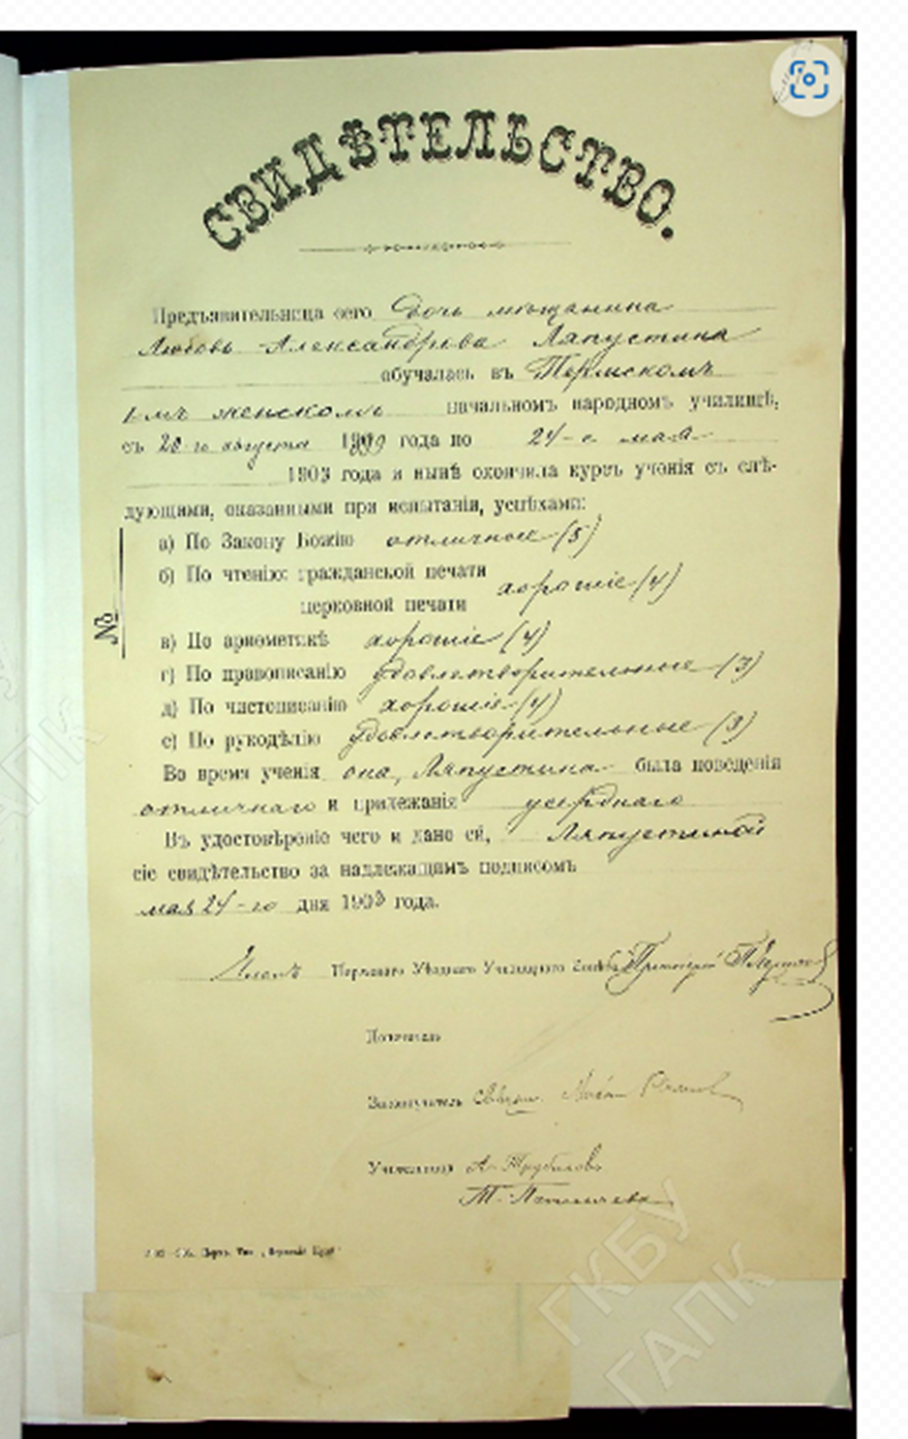 СВИДѢТЕЛЬСТВО.
Предъявительница сего Дочь мѣщанина
Любовь Александрова Ляпустина
обучалась въ Пермскомъ
1-мъ женскомъ начальномъ народномъ училищѣ,
съ 20 го августа года по 24-е мая
1903 года и нынѣ окончила курсъ ученія съ слѣ-
дующими, оказанными при испытаніи, успѣхами:
а) По Закону Божію отличные (5)
б) По чтенію: гражданской печати
церковной печати хорошіе (4)
№
в) По ариѳметикѣ хорошіе (4)
г) По правописанію удовлетворительные (3)
д) По чистописанію хорошіе (4)
е) По рукодѣлію удовлетворительные (3)
Во время ученія она, Ляпустина была поведенія
отличнаго и прилежанія усерднаго
Въ удостовѣреніе чего и дано ей, Ляпустиной
сіе свидѣтельство за надлежащимъ подписомъ
мая 24-го дня 1903 года.
Членъ Пермскаго Уѣзднаго Училищнаго Совѣта Протоіерей
Попечитель
Законоучитель Священ.
Учительница А. Трубина
Т.
ГКБУ
ГАПК